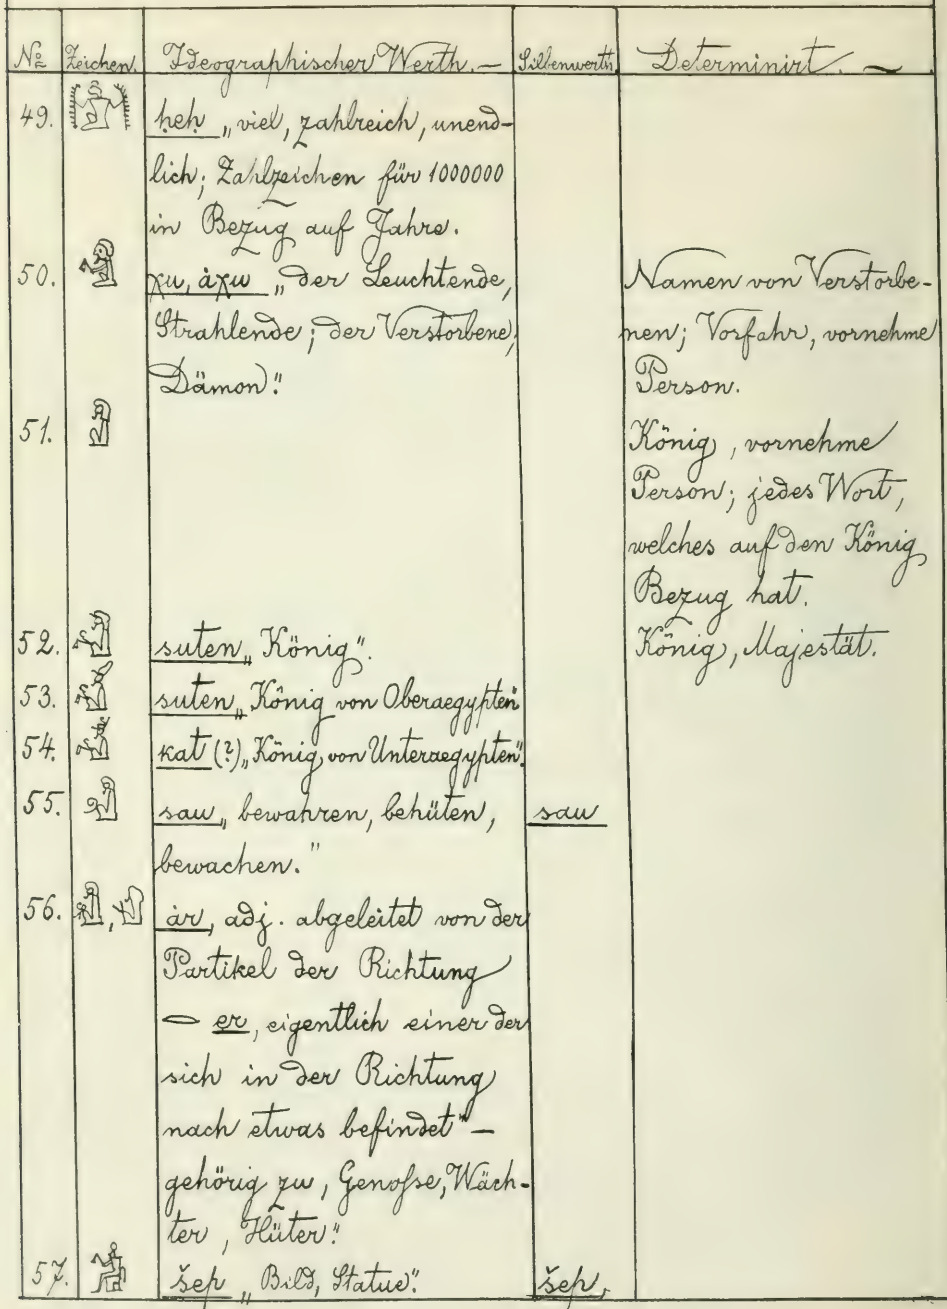 № Zeichen. Ideographischer Werth. — Silbenwerth. Determinirt. —
49. ḥeḥ „viel, zahlreich, unend-
lich; Zahlzeichen für 1000000
in Bezug auf Jahre.
50. χu, áχu „der Leuchtende, Namen von Verstorbe-
Strahlende; der Verstorbene, nen; Vorfahr, vornehme
Dämon". Person.
51. König, vornehme
Person; jedes Wort,
welches auf den König
Bezug hat.
52. suten „König". König, Majestät.
53. suten „König von Oberaegypten"
54. kat (?) „König von Unteraegypten".
55. sau „bewahren, behüten, sau
bewachen."
56. , ár, adj. abgeleitet von der
Partikel der Richtung
er, eigentlich einer der
sich in der Richtung
nach etwas befindet" —
gehörig zu, Genoſse, Wäch-
ter, Hüter".
57. šep „Bild, Statue". šep.